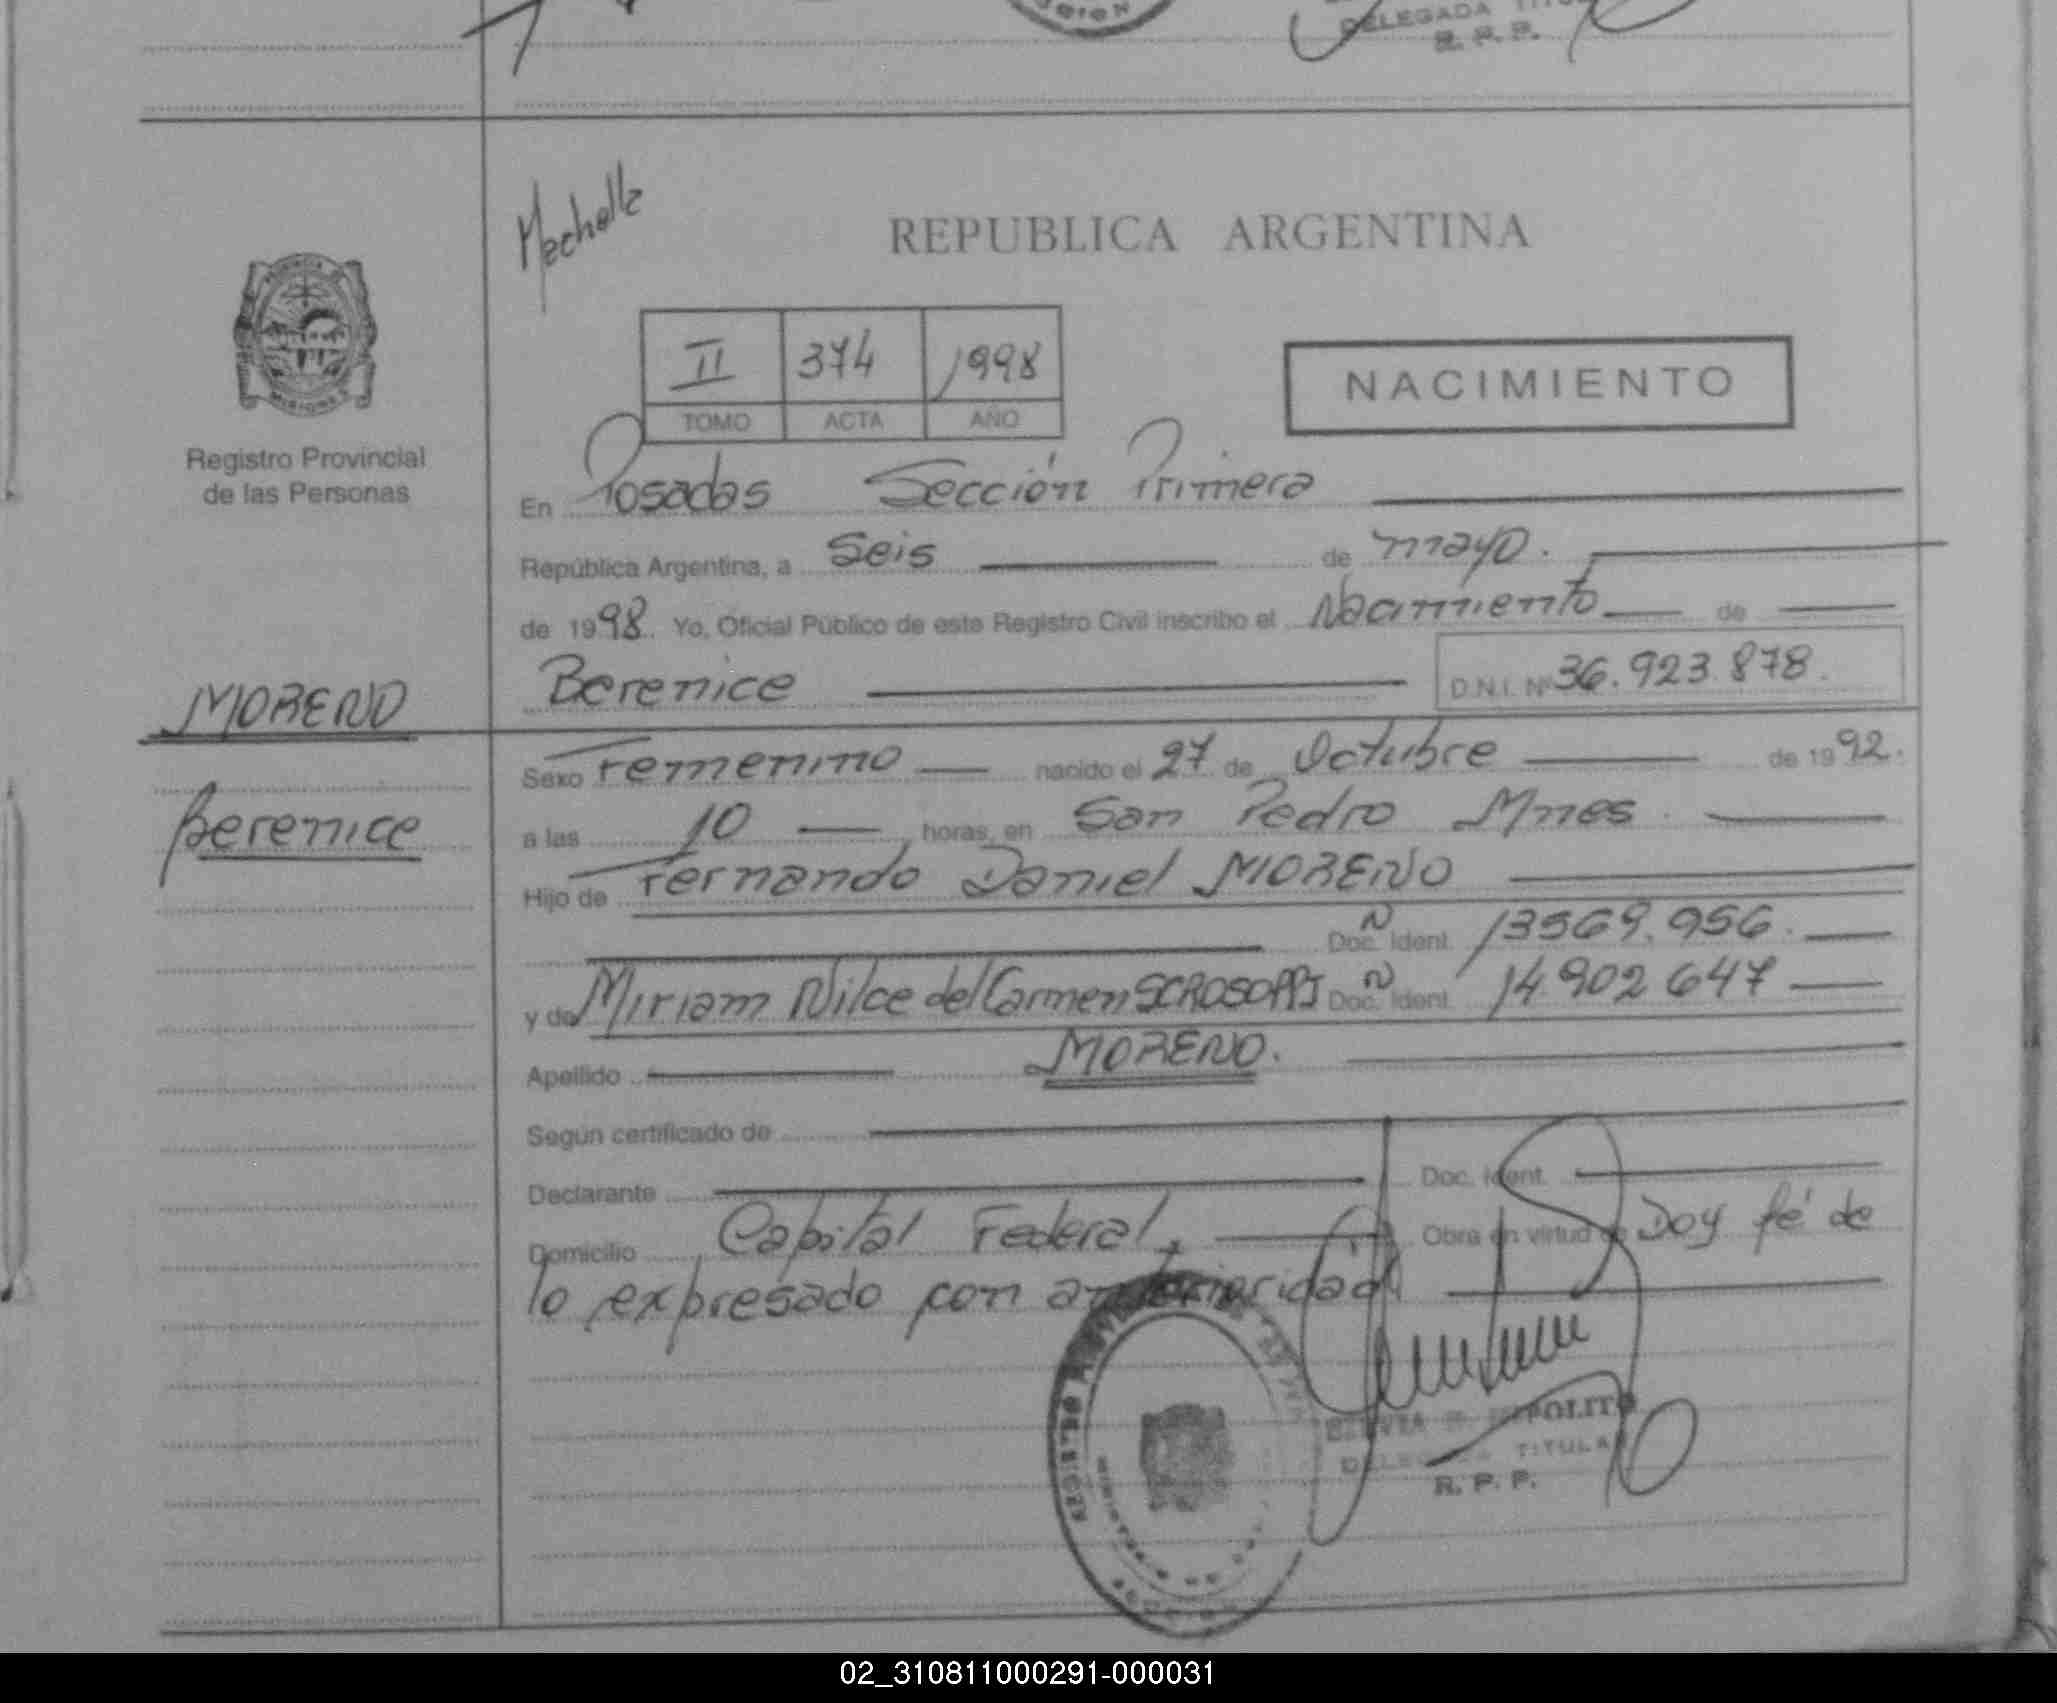 DELEGADA
R. P. P.
REPUBLICA ARGENTINA
II 374 1998
TOMO ACTA AÑO
NACIMIENTO
MISIONES
Registro Provincial
de las Personas
En Posadas Sección Primera
República Argentina, a Seis de mayo.
de 1998. Yo, Oficial Público de este Registro Civil inscribo el Nacimiento de
Berenice D.N.I. Nº 36.923.878.
MORENO
Berenice
Sexo Femenino nacido el 27 de Octubre de 1992.
a las 10 horas, en San Pedro Mnes.
Hijo de Fernando Daniel MORENO
Doc. Ident. 13569.956.
y de Miriam Nilce del Carmen SCROSOPPI Doc. Ident. 14.902.647
Apellido MORENO.
Según certificado de
Declarante Doc. Ident.
Domicilio Capital Federal, Obra en virtud de Doy fé de
lo expresado con anterioridad
TITULAR
R. P. P.
02_310811000291-000031